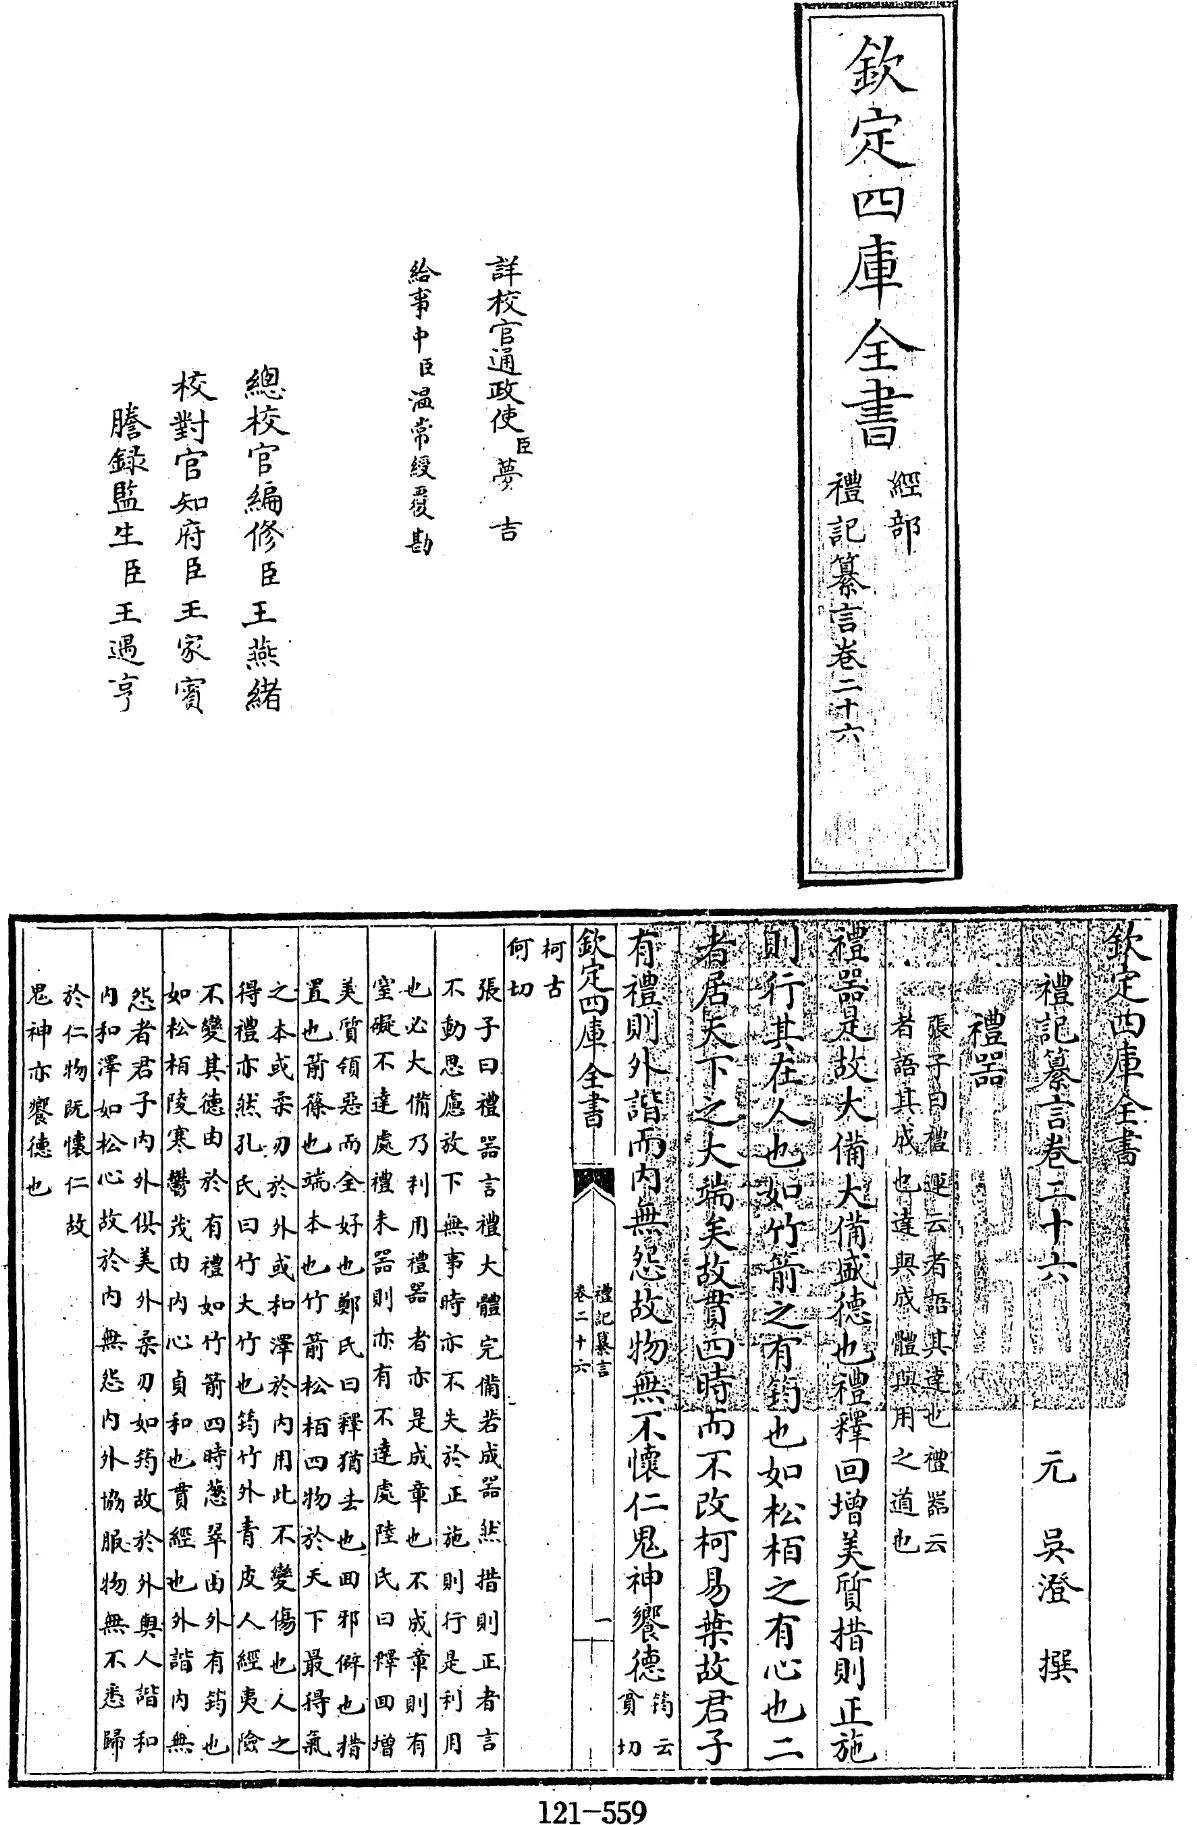 欽定四庫全書
經部
禮記纂言卷二十六
詳校官通政使臣夢吉
給事中臣溫常綬覆勘
總校官編修臣王燕緒
校對官知府臣王家賓
謄錄監生臣王遇亨
欽定四庫全書
禮記纂言卷二十六　元　吳澄　撰
禮器
張子曰禮運云者語其達也禮器云
者語其成也達與成體與用之道也
禮器是故大備大備盛德也禮釋回增美質措則正施
則行其在人也如竹箭之有筠也如松栢之有心也二
者居天下之大端矣故貫四時而不改柯易葉故君子
有禮則外諧而內無怨故物無不懷仁鬼神饗德筠云貧切
欽定四庫全書
禮記纂言
卷二十六
一
柯古
何切
張子曰禮器言禮大體完備若成器然措則正者言
不動思慮放下無事時亦不失於正施則行是利用
也必大備乃利用禮器者亦是成章也不成章則有
窒礙不達處禮未器則亦有不達處陸氏曰釋回增
美質領惡而全好也鄭氏曰釋猶去也回邪僻也措
置也箭篠也端本也竹箭松栢四物於天下最得氣
之本或柔刃於外或和澤於內用此不變傷也人之
得禮亦然孔氏曰竹大竹也筠竹外青皮人經夷險
不變其德由於有禮如竹箭四時蔥翠由外有筠也
如松栢陵寒鬱茂由內心貞和也貫經也外諧內無
怨者君子內外俱美外柔刃如筠故於外與人諧和
內和澤如松心故於內無怨內外協服物無不悉歸
於仁物既懷仁故
鬼神亦饗德也
121-559